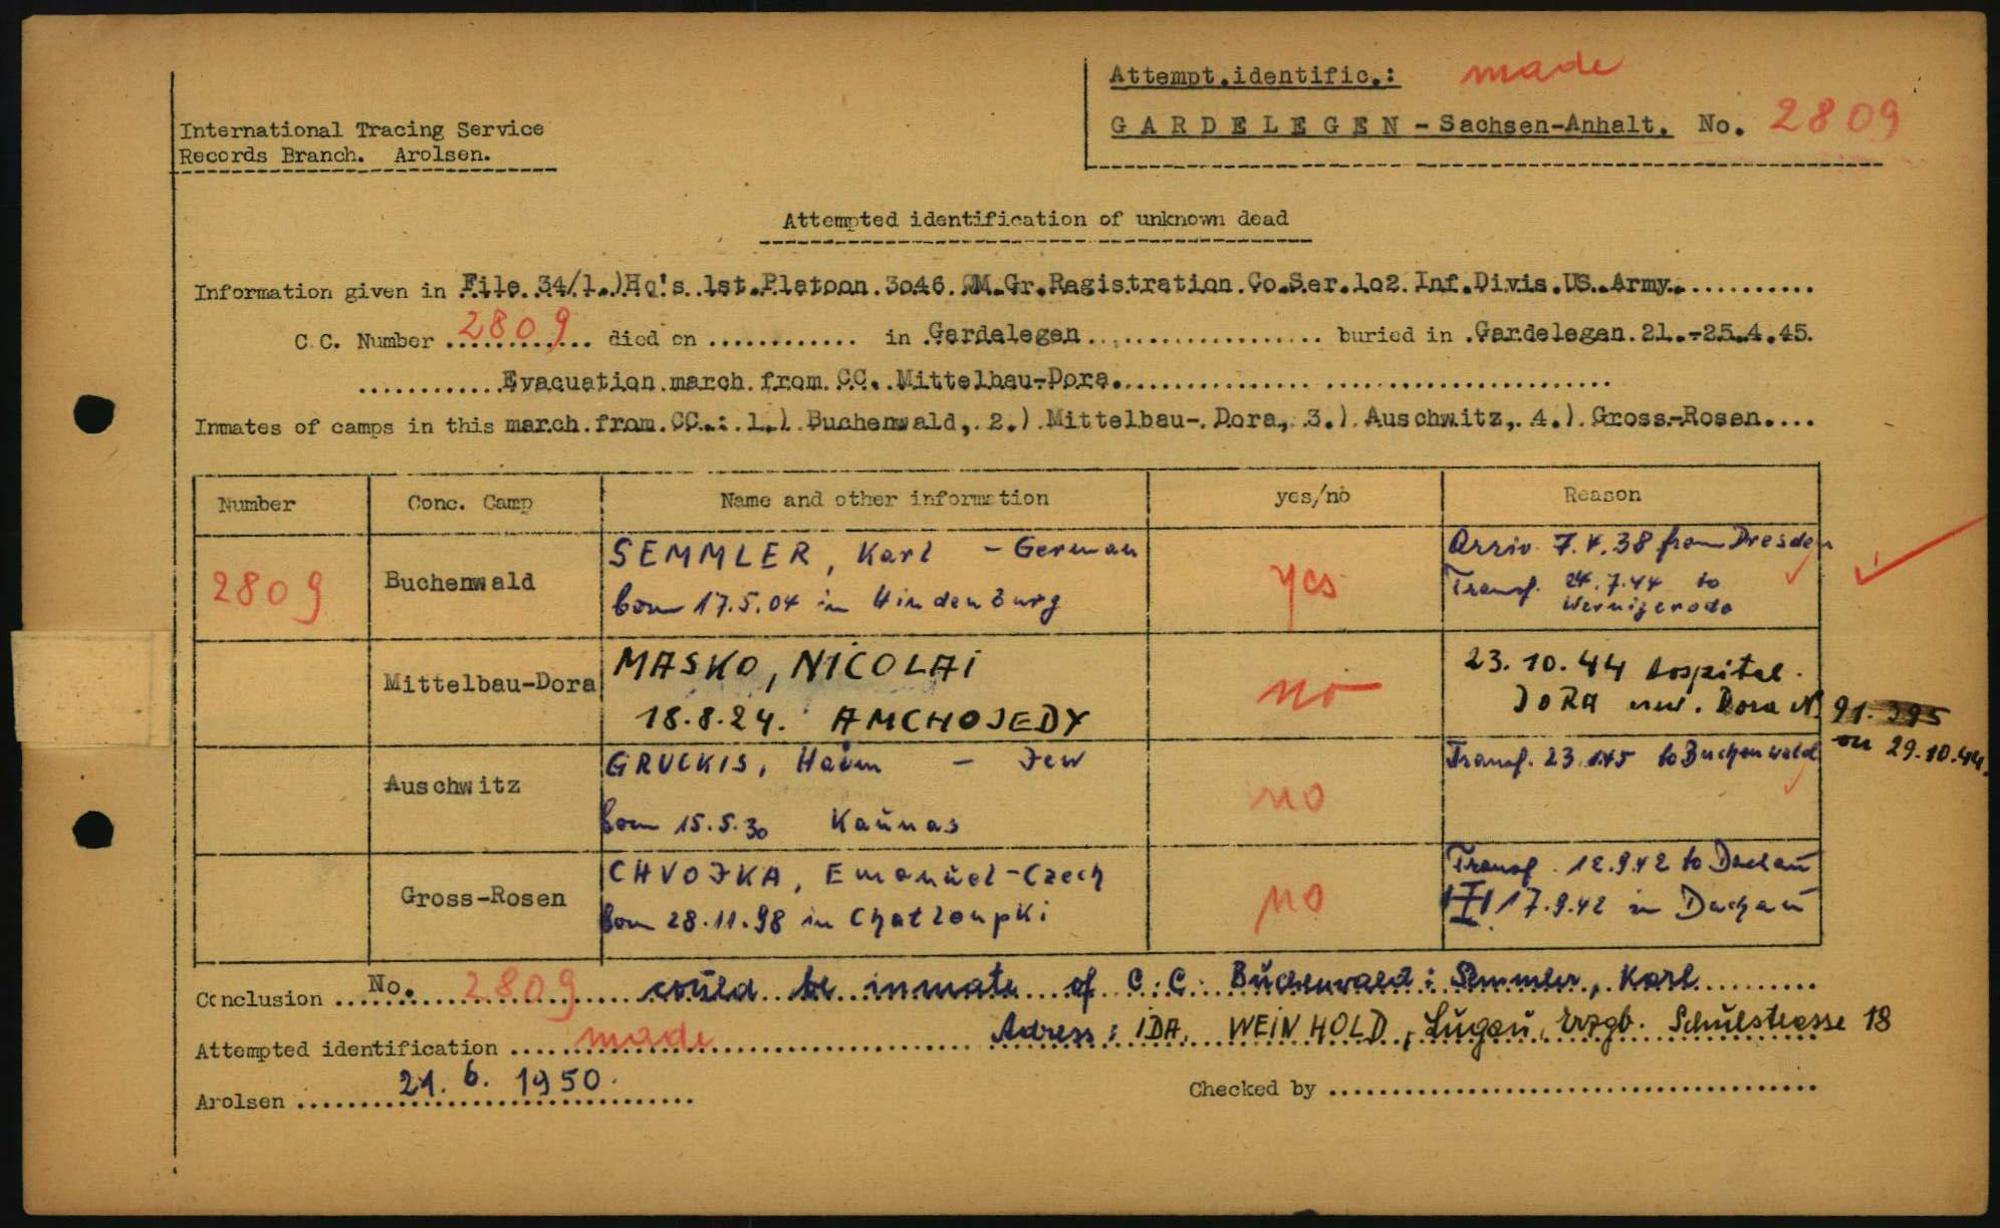 Attempt.identific.: made
GARDELEGEN - Sachsen-Anhalt. No. 2809
International Tracing Service
Records Branch. Arolsen.
Attempted identification of unknown dead
Information given in File 34/1.)Hq's 1st.Platoon.3046.QM.Gr.Ragistration.Co.Ser.102.Inf.Divis.US.Army.
C.C. Number 2809 died on ............ in Gardelegen buried in Gardelegen.21.-25.4.45.
Evacuation march from CC. Mittelbau-Dora.
Inmates of camps in this march from CC.: 1.) Buchenwald, 2.) Mittelbau-Dora, 3.) Auschwitz, 4.) Gross-Rosen.
Number Conc. Camp Name and other information yes/no Reason
2809 Buchenwald SEMMLER, Karl - German yes Arriv. 7.4.38 from Dresden
born 17.5.04 in Hindenburg Transf. 24.7.44 to
Wernigerode
Mittelbau-Dora MASKO, NICOLAI no 23.10.44 hospital.
18.8.24. AMCHOJEDY DORA Dora N. 91.395
on 29.10.44.
Auschwitz GRUCKIS, Haim - Jew no Transf. 23.1.45 to Buchenwald
born 15.5.30 Kaunas
Gross-Rosen CHVOJKA, Emanuel - Czech no Transf. 12.9.42 to Dachau
born 28.11.98 in Chatloupki 17.9.42 in Dachau
Conclusion No. 2809 could be inmate of C.C. Buchenwald: Semmler, Karl
Attempted identification made Adress: IDA, WEINHOLD, Lugau, Erzgb. Schulstrasse 18
Arolsen 21. 6. 1950. Checked by